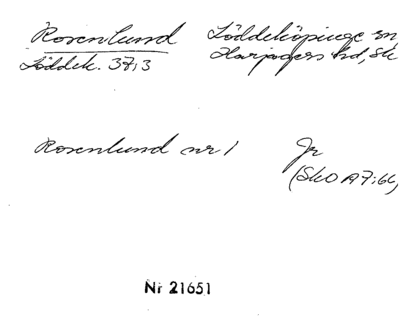 Rosenlund Löddeköpinge sn
Löddek. 37:3 Harjagers hd, Sk
Rosenlund nr 1 Jr
(SkO A7:66)
Nr 21651